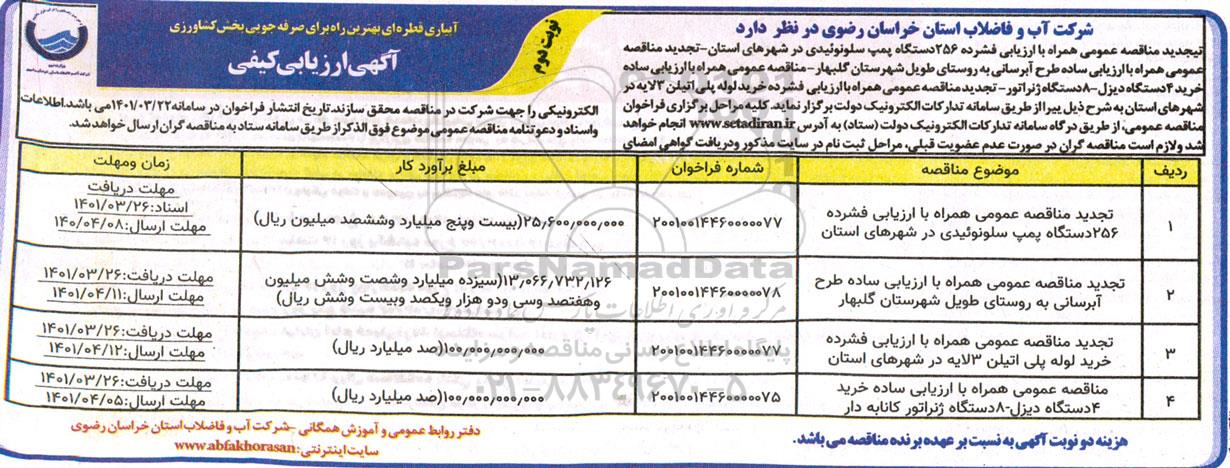 آبیاری قطره ای بهترین راه برای صرفه جویی بخش کشاورزی
آگهی ارزیابی کیفی
نوبت دوم
شرکت آب و فاضلاب استان خراسان رضوی در نظر دارد
تیجدید مناقصه عمومی همراه با ارزیابی فشرده ۲۵۶دستگاه پمپ سلونوئیدی در شهرهای استان-تجدید مناقصه
عمومی همراه با ارزیابی ساده طرح آبرسانی به روستای طویل شهرستان گلبهار-مناقصه عمومی همراه با ارزیابی ساده
خرید ۴دستگاه دیزل-۸دستگاه ژنراتور- تجدید مناقصه عمومی همراه باارزیابی فشرده خرید لوله پلی اتیلن ۳لایه در
شهرهای استان به شرح ذیل پیرازطریق سامانه تدارکات الکترونیک دولت برگزار نماید. کلیه مراحل برگزاری فراخوان
مناقصه عمومی، از طریق درگاه سامانه تدارکات الکترونیک دولت (ستاد) به آدرس www.setadiran.ir انجام خواهد
شد ولازم است مناقصه گران در صورت عدم عضویت قبلی، مراحل ثبت نام در سایت مذکور ودریافت گواهی امضای
الکترونیکی را جهت شرکت در مناقصه محقق سازند.تاریخ انتشار فراخوان در سامانه۱۴۰۱/۰۳/۲۲می باشد.اطلاعات
واسناد و دعوتنامه مناقصه عمومی موضوع فوق الذکر از طریق سامانه ستاد به مناقصه گران ارسال خواهدشد.
ردیف موضوع مناقصه شماره فراخوان مبلغ برآورد کار زمان ومهلت
۱ تجدید مناقصه عمومی همراه با ارزیابی فشرده
۲۵۶دستگاه پمپ سلونوئیدی در شهرهای استان
۲۰۰۱۰۰۱۴۴۶۰۰۰۰۰۷۷
۲۵,۶۰۰,۰۰۰,۰۰۰(بیست وپنج میلیارد وششصد میلیون ریال)
مهلت دریافت
اسناد:۱۴۰۱/۰۳/۲۶
مهلت ارسال:۱۴۰/۰۴/۰۸
۲ تجدید مناقصه عمومی همراه با ارزیابی ساده طرح
آبرسانی به روستای طویل شهرستان گلبهار
۲۰۰۱۰۰۱۴۴۶۰۰۰۰۰۷۸
۱۳,۰۶۶,۷۳۲,۱۲۶(سیزده میلیارد وشصت وشش میلیون
وهفتصد وسی ودو هزار ویکصد وبیست وشش ریال)
مهلت دریافت:۱۴۰۱/۰۳/۲۶
مهلت ارسال:۱۴۰۱/۰۴/۱۱
۳ تجدید مناقصه عمومی همراه با ارزیابی فشرده
خرید لوله پلی اتیلن ۳لایه در شهرهای استان
۲۰۰۱۰۰۱۴۴۶۰۰۰۰۰۷۷
۱۰۰,۰۰۰,۰۰۰,۰۰۰(صد میلیارد ریال)
مهلت دریافت:۱۴۰۱/۰۳/۲۶
مهلت ارسال:۱۴۰۱/۰۴/۱۲
۴ مناقصه عمومی همراه با ارزیابی ساده خرید
۴دستگاه دیزل-۸دستگاه ژنراتور کانابه دار
۲۰۰۱۰۰۱۴۴۶۰۰۰۰۰۷۵
۱۰۰,۰۰۰,۰۰۰,۰۰۰(صد میلیارد ریال)
مهلت دریافت:۱۴۰۱/۰۳/۲۶
مهلت ارسال:۱۴۰۱/۰۴/۰۵
ParsNamadData
۰۲۱-۸۸۳۴۹۶۷۰-۵
هزینه دو نوبت آگهی به نسبت بر عهده برنده مناقصه می باشد.
دفتر روابط عمومی و آموزش همگانی -شرکت آب و فاضلاب استان خراسان رضوی
سایت اینترنتی: www.abfakhorasan